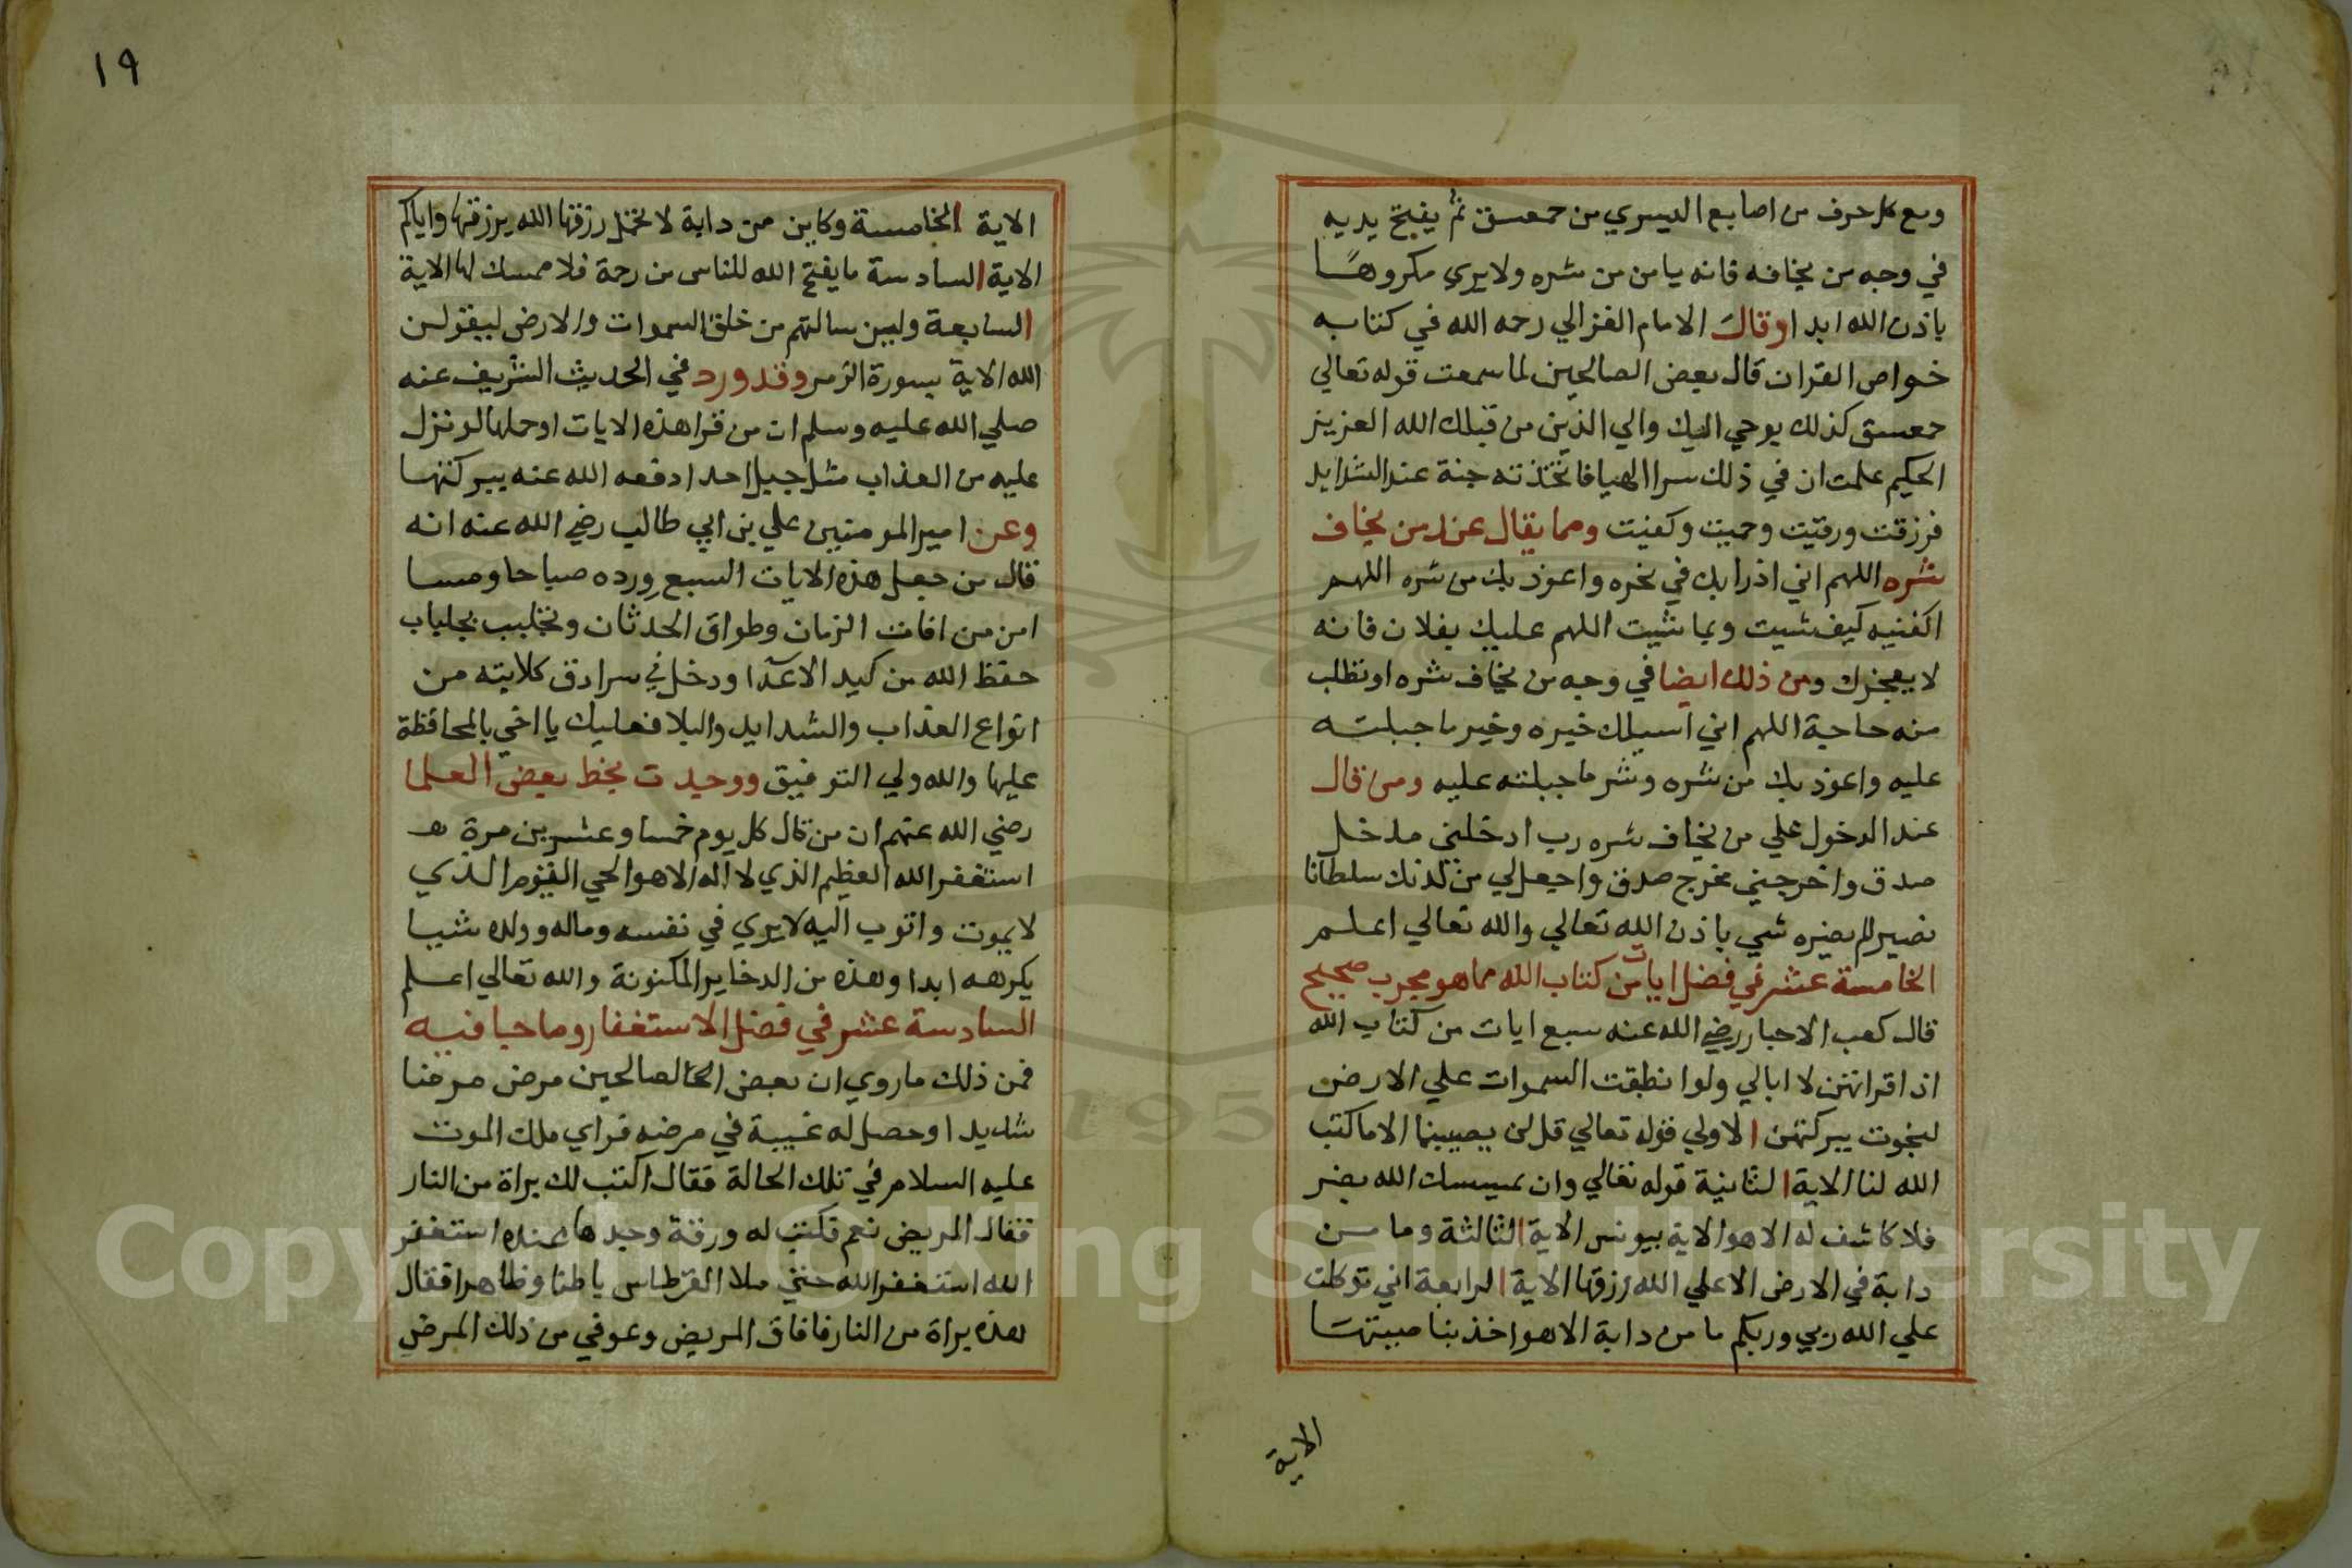 ومع كل حرف من اصابع اليسري من حمعسق ثم يفتح يديه
في وجه من يخافه فانه يامن من شره ولا يري مكروهًا
باذن الله ابدا وقال الامام الغزالي رحمه الله في كتابه
خواص القران قال بعض الصالحين لما سمعت قوله تعالي
حمعسق كذلك يوحي اليك والي الذين من قبلك الله العزيز
الحكيم علمت ان في ذلك سرا الهيا فاتخذته جنة عند الشدايد
فرزقت ورقيت وحميت وكفيت ومما يقال عند من يخاف
شره اللهم اني ادرا بك في نحره واعوذ بك من شره اللهم
اكفنيه كيف شيت وبما شيت اللهم عليك بفلان فانه
لا يعجزك ومن ذلك ايضا في وجه من يخاف شره او تطلب
منه حاجة اللهم اني اسيلك خيره وخير ما جبلته
عليه واعوذ بك من شره وشر ما جبلته عليه ومن قال
عند الدخول علي من يخاف شره رب ادخلني مدخل
صدق واخرجني مخرج صدق واجعل لي من لدنك سلطانا
نصيرا لم يضره شي باذن الله تعالي والله تعالي اعلم
الخامسة عشر في فضل ايات من كتاب الله مما هو مجرب صحيح
قال كعب الاحبار رضي الله عنه سبع ايات من كتاب الله
اذا قراتهن لا ابالي ولو انطبقت السموات علي الارض
لنجوت ببركتهن الاولي قوله تعالي قل لن يصيبنا الا ما كتب
الله لنا الاية الثانية قوله تعالي وان يمسسك الله بضر
فلا كاشف له الا هو الاية بيونس الاية الثالثة وما من
دابة في الارض الا علي الله رزقها الاية الرابعة اني توكلت
علي الله ربي وربكم ما من دابة الا هو اخذ بناصيتها
الاية
١٩
الاية الخامسة وكاين من دابة لا تحمل رزقها الله يرزقها واياكم
الاية السادسة ما يفتح الله للناس من رحمة فلا ممسك لها الاية
السابعة ولين سالتهم من خلق السموات والارض ليقولن
الله الاية بسورة الزمر وقد ورد في الحديث الشريف عنه
صلي الله عليه وسلم ان من قرا هذه الايات او حملها لو نزل
عليه من العذاب مثل جبل احد ادفعه الله عنه ببركتها
وعن امير المومنين علي بن ابي طالب رضي الله عنه انه
قال من جعل هذه الايات السبع ورده صباحا ومسا
امن من افات الزمان وطواق الحدثان وتجلبب بجلباب
حفظ الله من كيد الاعدآ ودخل في سرادق كلايته من
انواع العذاب والشدايد والبلا فعليك يا اخي بالمحافظة
عليها والله ولي التوفيق ووجدت بخط بعض العلما
رضي الله عنهم ان من قال كل يوم خمسا وعشرين مرة
استغفر الله العظيم الذي لا اله الا هو الحي القيوم الذي
لا يموت واتوب اليه لا يري في نفسه وماله وولده شيا
يكرهه ابدا وهذه من الدخاير المكنونة والله تعالي اعلم
السادسة عشر في فضل الاستغفار وما جا فيه
فمن ذلك ما روي ان بعض الصالحين مرض مرضا
شديدا وحصل له غيبة في مرضه فراي ملك الموت
عليه السلام في تلك الحالة فقال اكتب لك براة من النار
فقال المريض نعم فكتب له ورقة وجدها عنده استغفر
الله استغفر الله حتي ملا القرطاس باطنا وظاهرا فقال
هذه براة من النار فافاق المريض وعوفي من ذلك المرض
Copyright © King Saud University
195